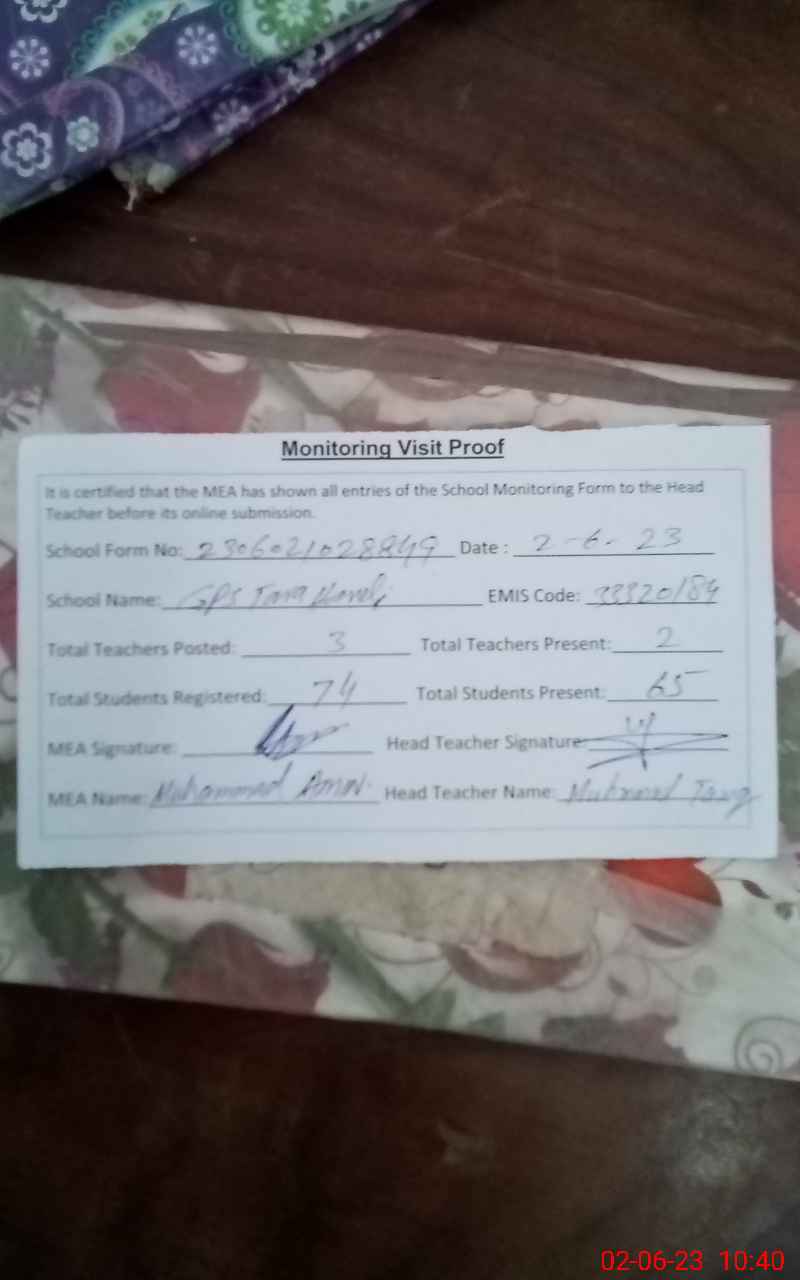 Monitoring Visit Proof
It is certified that the MEA has shown all entries of the School Monitoring Form to the Head
Teacher before its online submission.
School Form No: 2306021028849 Date : 2-6-23
School Name: GPS EMIS Code: 33320184
Total Teachers Posted: 3 Total Teachers Present: 2
Total Students Registered: 74 Total Students Present: 65
MEA Signature: Head Teacher Signature:
MEA Name: Muhammad Head Teacher Name:
02-06-23 10:40